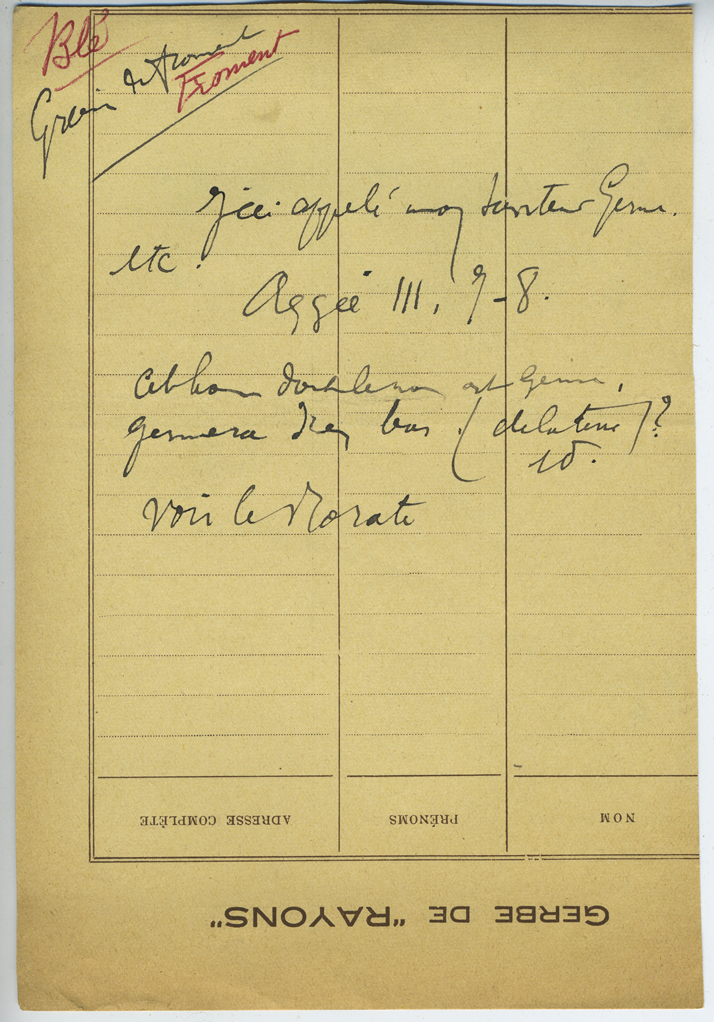 Blé
Grain de froment
Froment
J'ai appelé mon serviteur Germe.
etc.
Aggée III, 7-8.
Cet homme dont le nom est Germe,
germera d'en bas. (de la terre)?
id.
Voir le
NOM
PRÉNOMS
ADRESSE COMPLÈTE
GERBE DE "RAYONS"